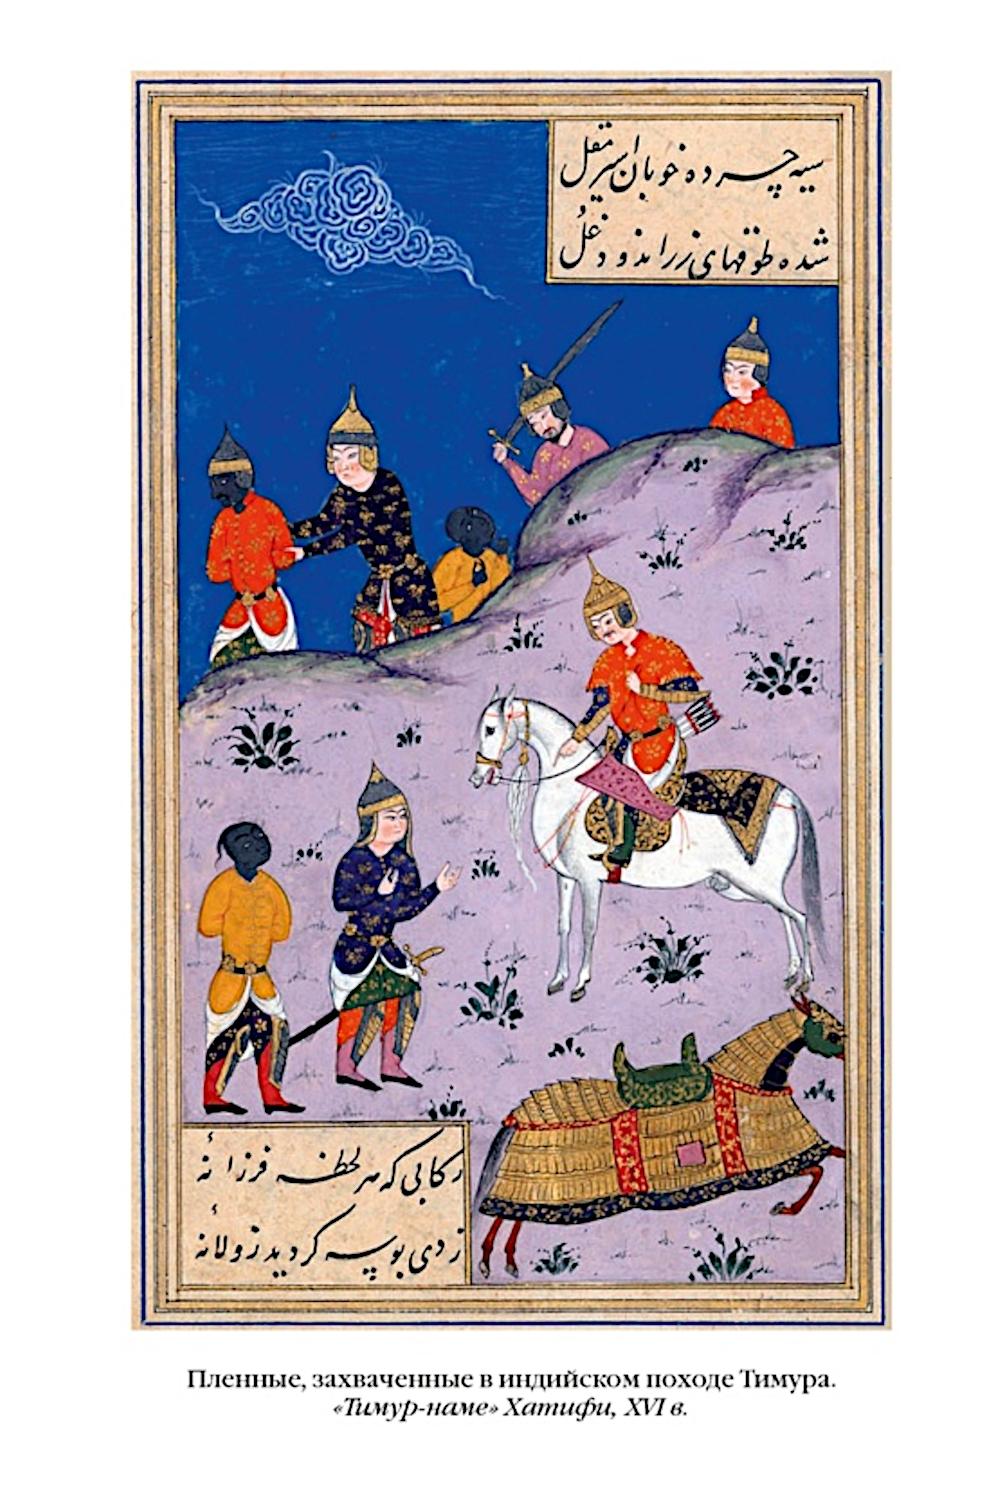 سیه چرده خوبان اسیر مغل
شده طوقهای زر اندود غل
رکابی که هر لحظه فرزانهٔ
زدی بوسه کردید زولانهٔ
Пленные, захваченные в индийском походе Тимура.
«Тимур-наме» Хатифи, XVI в.